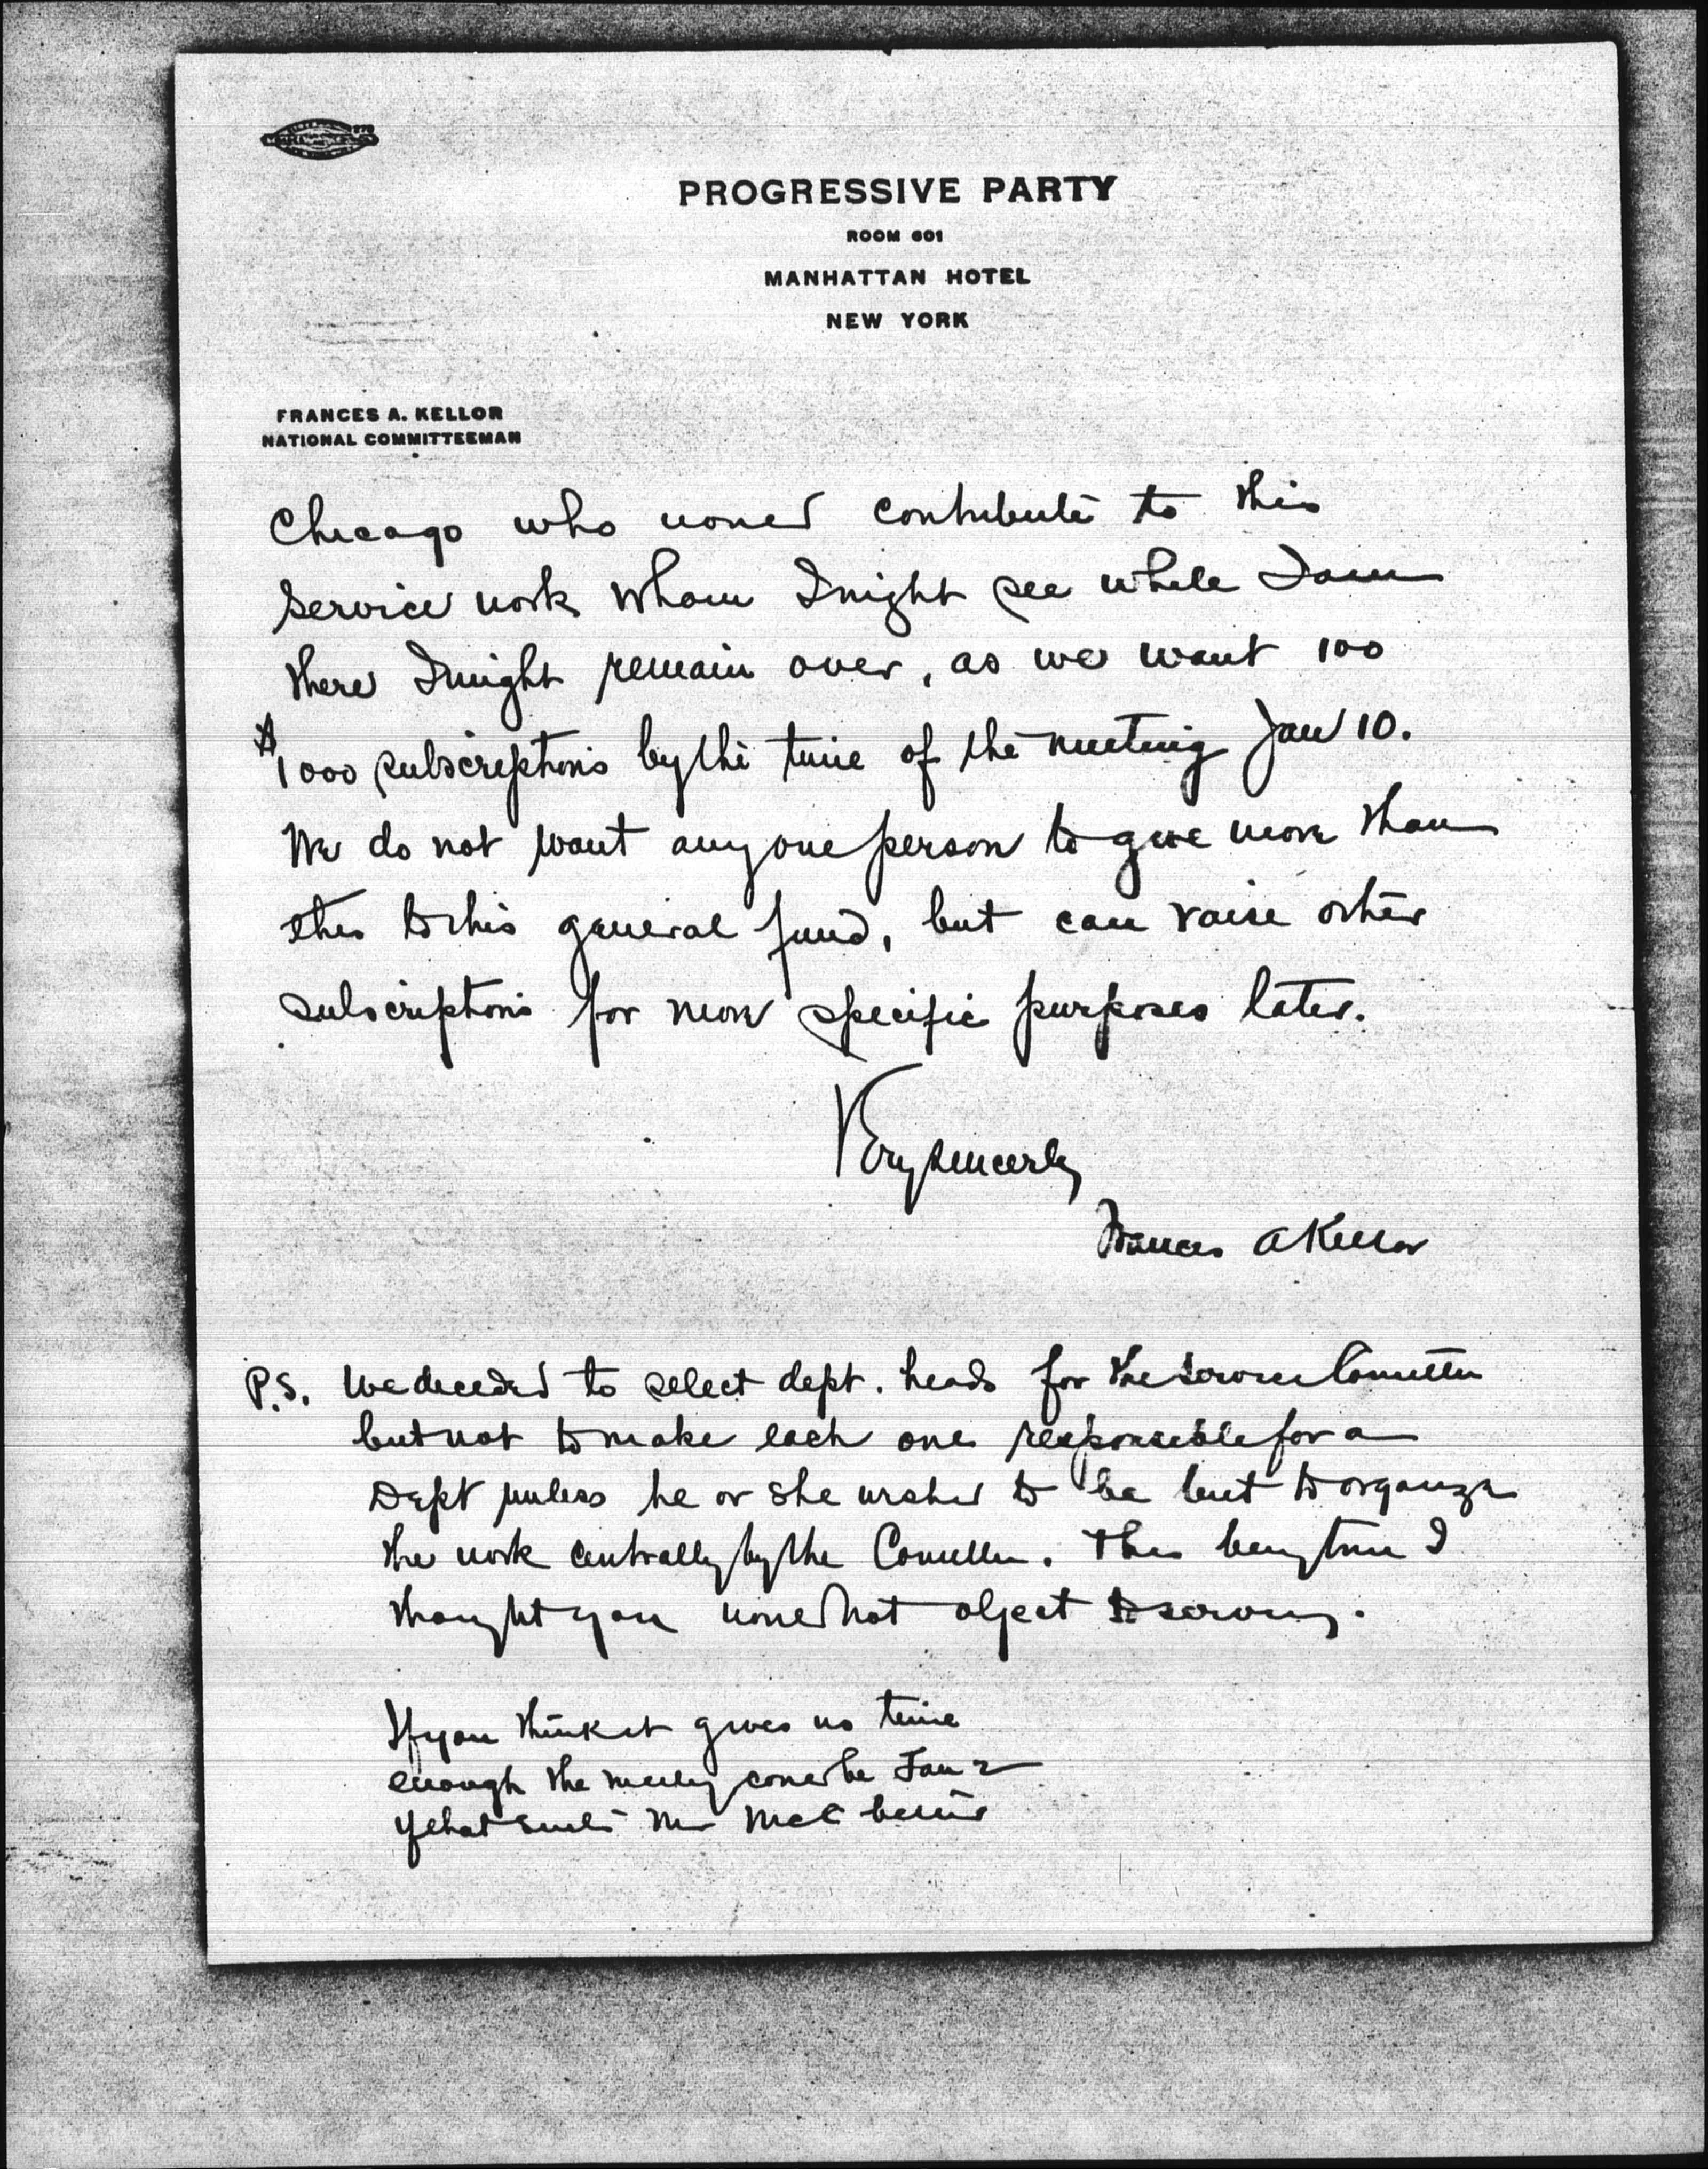 PROGRESSIVE PARTY
ROOM 601
MANHATTAN HOTEL
NEW YORK
FRANCES A. KELLOR
NATIONAL COMMITTEEMAN
Chicago who would contribute to this
service work whom I might see while I am
there I might remain over, as we want 100
$1000 subscriptions by the time of the meeting Jan 10.
We do not want any one person to give more than
this to this general fund, but can raise other
subscriptions for more specific purposes later.
Very sincerely
Frances A Kellor
P.S. We decided to select dept. heads for the service Committee
but not to make each one responsible for a
Dept unless he or she wishes to be but to organize
the work centrally by the Committee. This being true I
thought you would not object to serving.
If you think it gives us time
enough the meeting could be Jan 2
if that suits Mr McC better